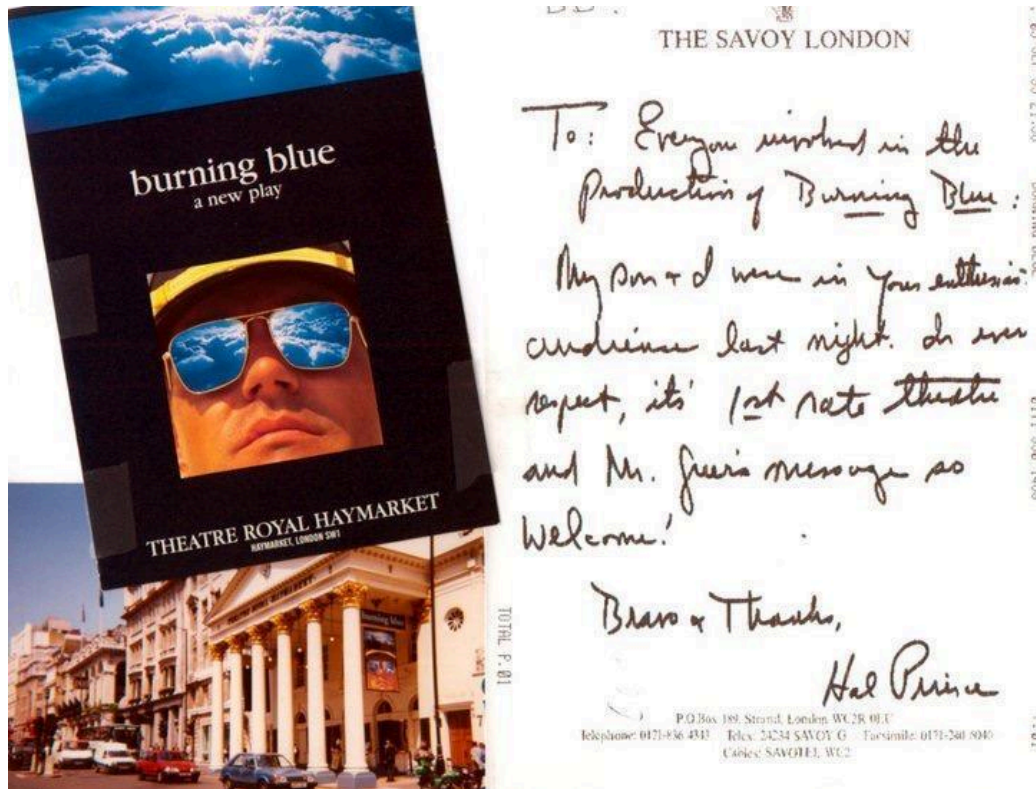 burning blue
a new play
THEATRE ROYAL HAYMARKET
HAYMARKET, LONDON SW1
burning blue
TOTAL P.01
THE SAVOY LONDON
To: Everyone involved in the
Production of Burning Blue:
My son + I were in your enthusias
audience last night. In ever
respect, it's 1st rate theatre
and Mr. Greer's message so
Welcome!
Bravo & Thanks,
Hal Prince
P.O Box 189, Strand, London WC2R 0EU
Telephone: 0171-836 4343 Telex: 24234 SAVOY G Facsimile: 0171-240 6040
Cables: SAVOTEL, WC2